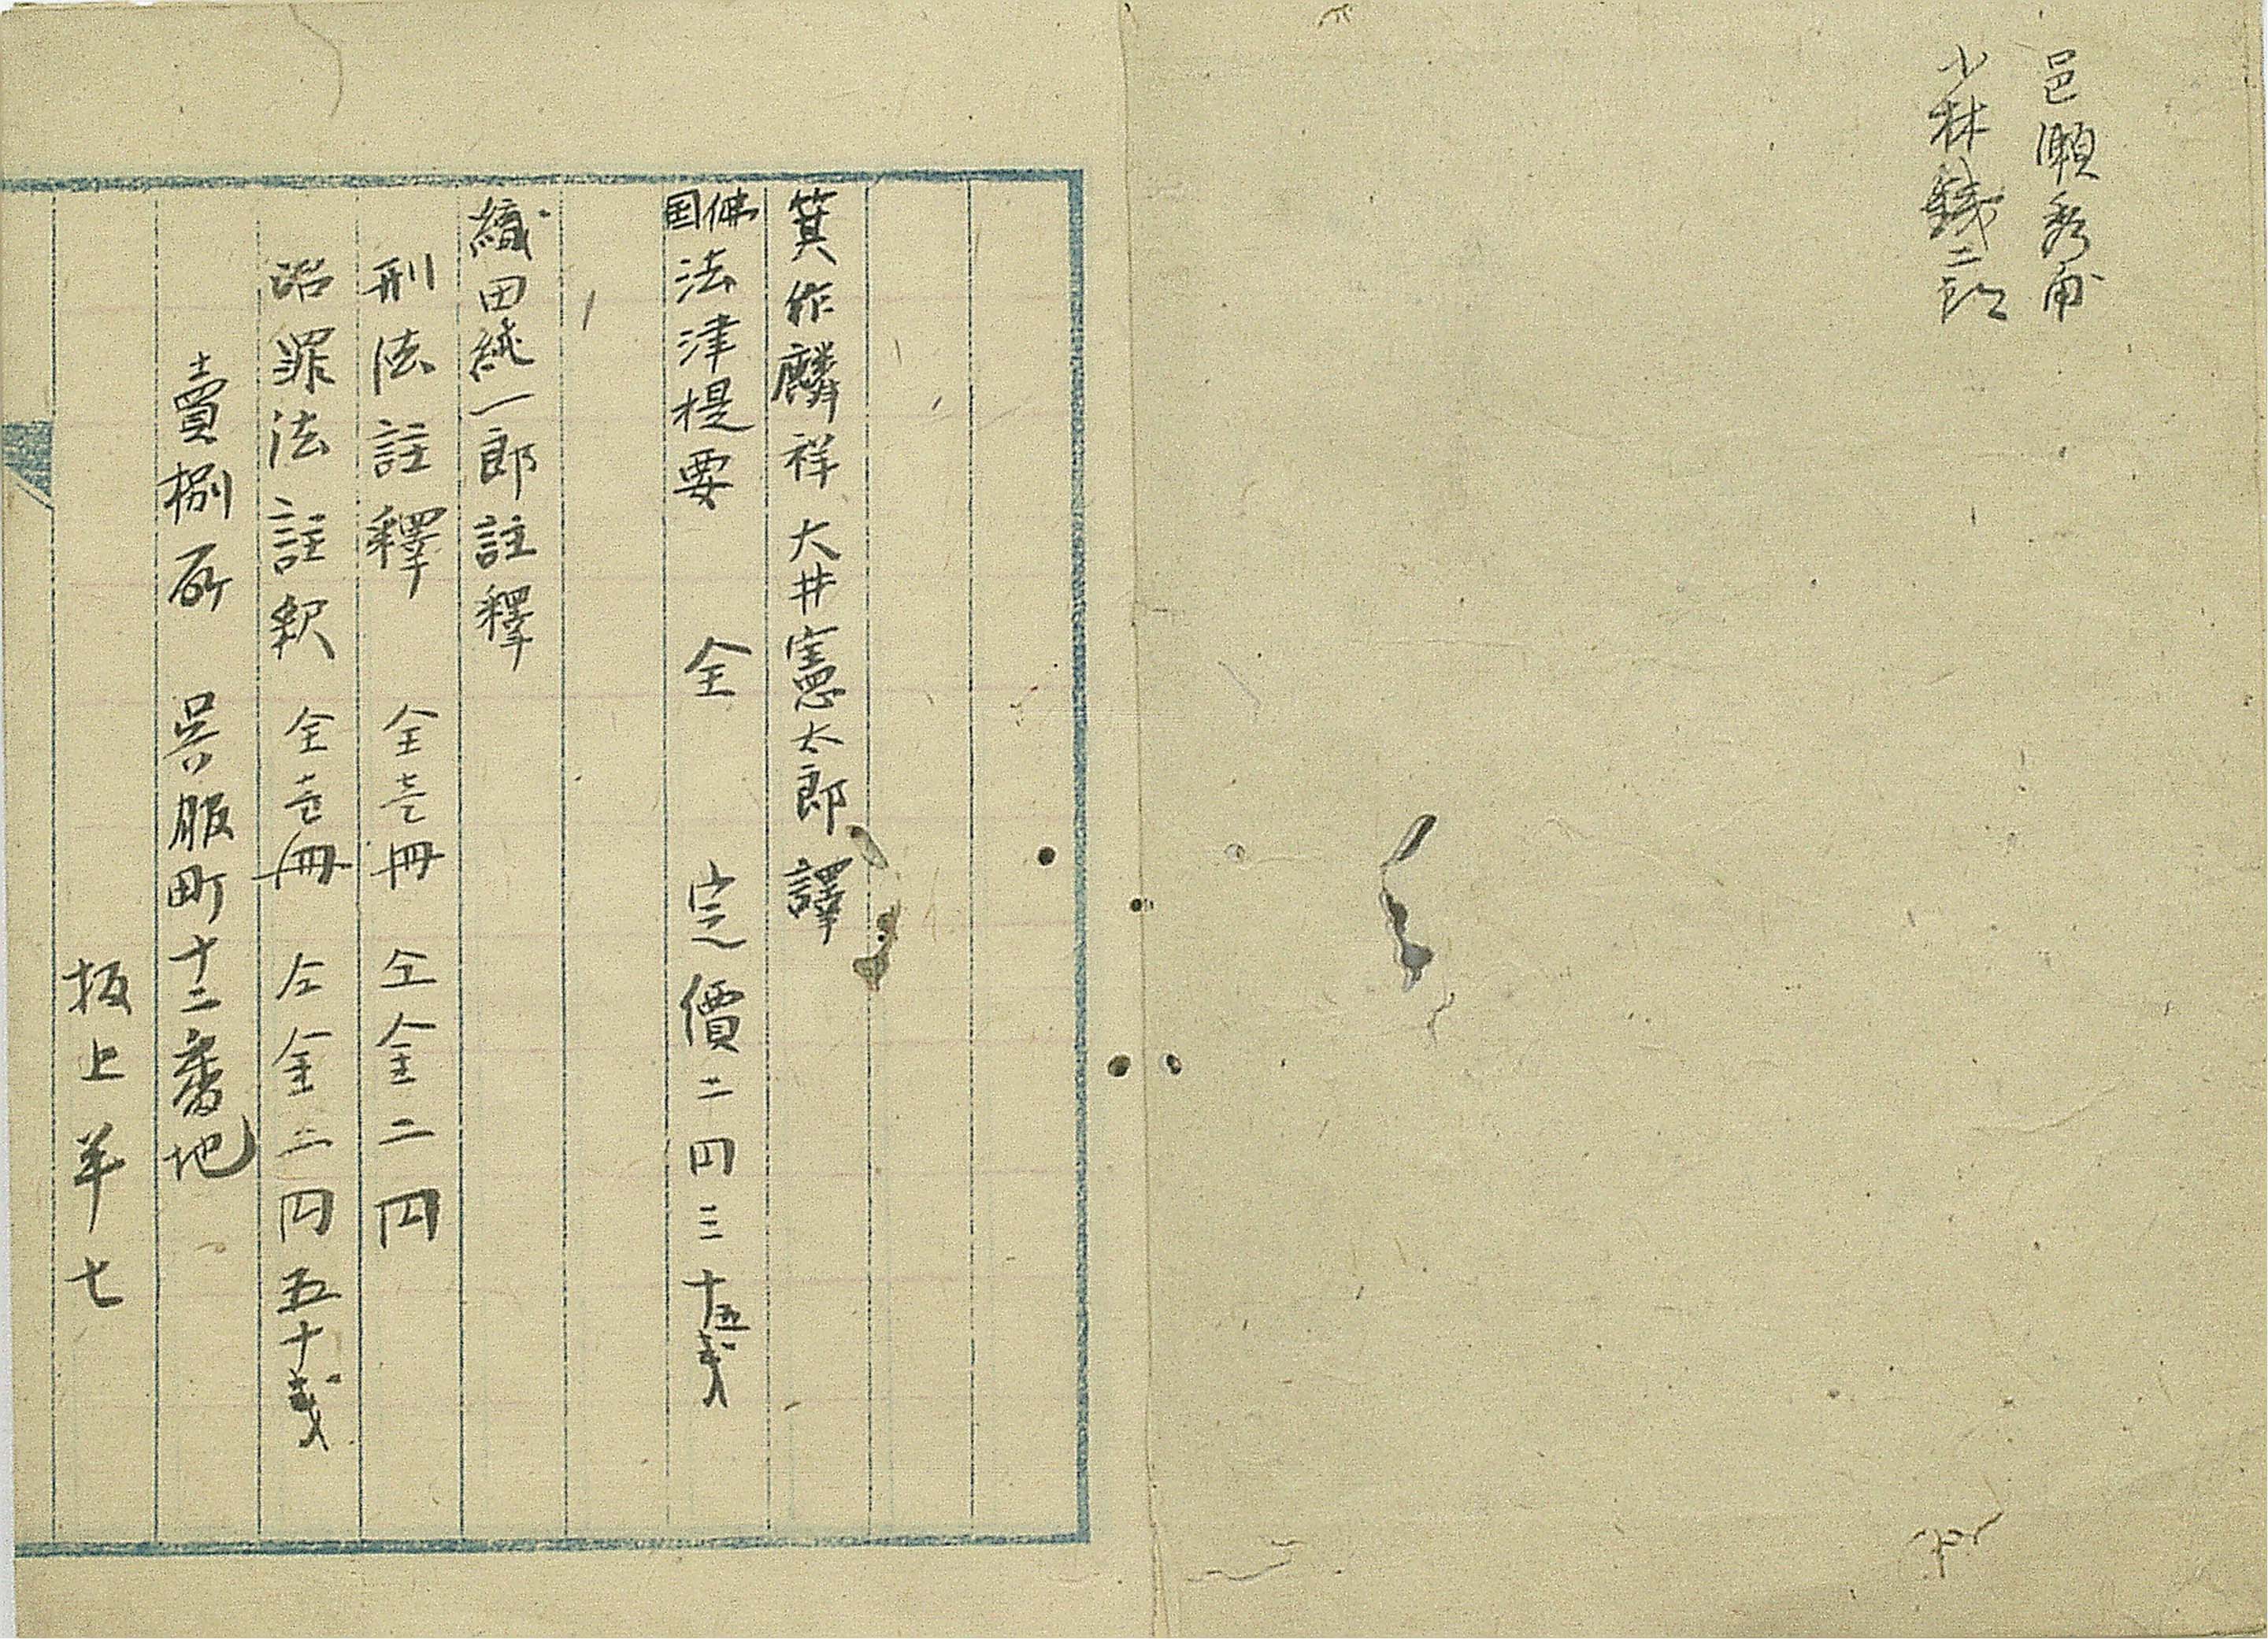 邑瀬秀甫
小林鉄二郎
箕作麟祥 大井憲太郎 譯
佛国 法津提要 全 定價二円三十五戋
織田純一郎註釋
刑法註釋 全壱冊 仝金二円
治罪法註釈 全壱冊 仝金三円五十戋
賣捌所 呉服町十二番地
坂上半七